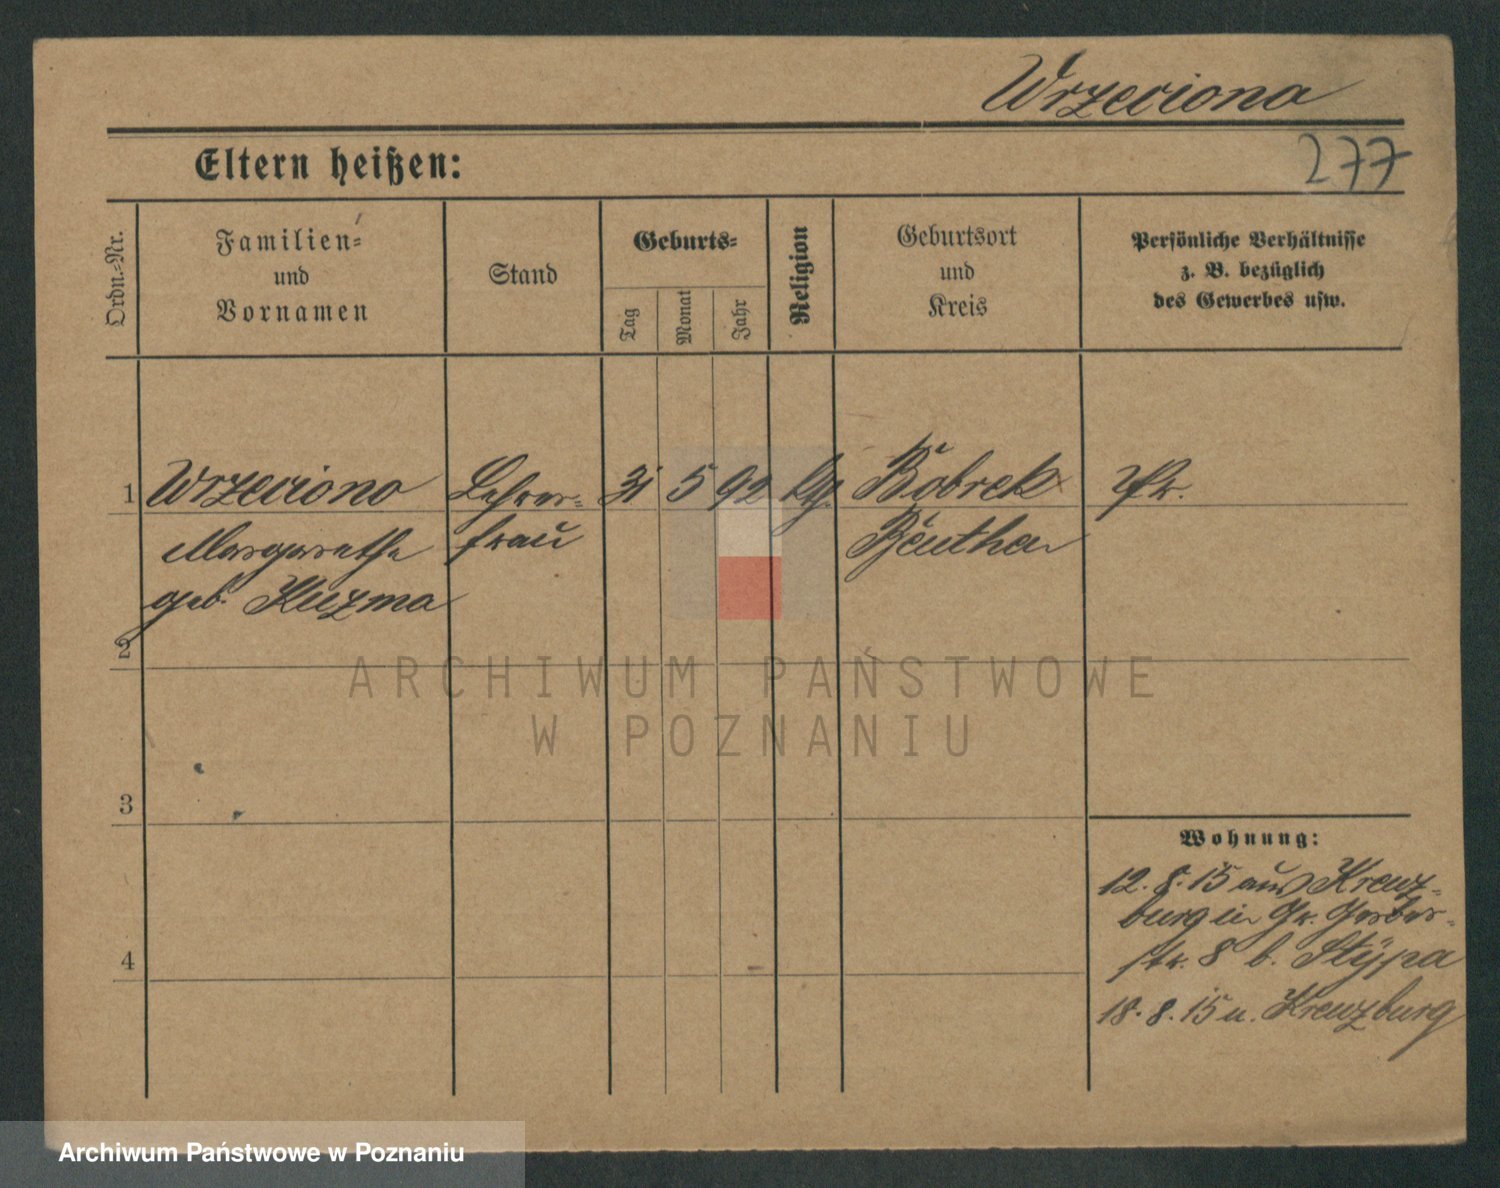 Wrzeciona
277
Eltern heißen:
Ordn.-Nr.
Familien-
und
Vornamen
Stand
Geburts-
Tag
Monat
Jahr
Religion
Geburtsort
und
Kreis
Persönliche Verhältnisse
z. B. bezüglich
des Gewerbes usw.
1
Wrzeciono
Margarethe
geb. Kuzma
Lehrer-
frau
31
5
92
kg.
Bobrek
Beuthen
Pr.
2
3
4
Wohnung:
12. 8. 15 aus Kreuz-
burg in Gr. Gerber-
str. 8 b. Stypa
18. 8. 15 n. Kreuzburg
ARCHIWUM PAŃSTWOWE
W POZNANIU
Archiwum Państwowe w Poznaniu